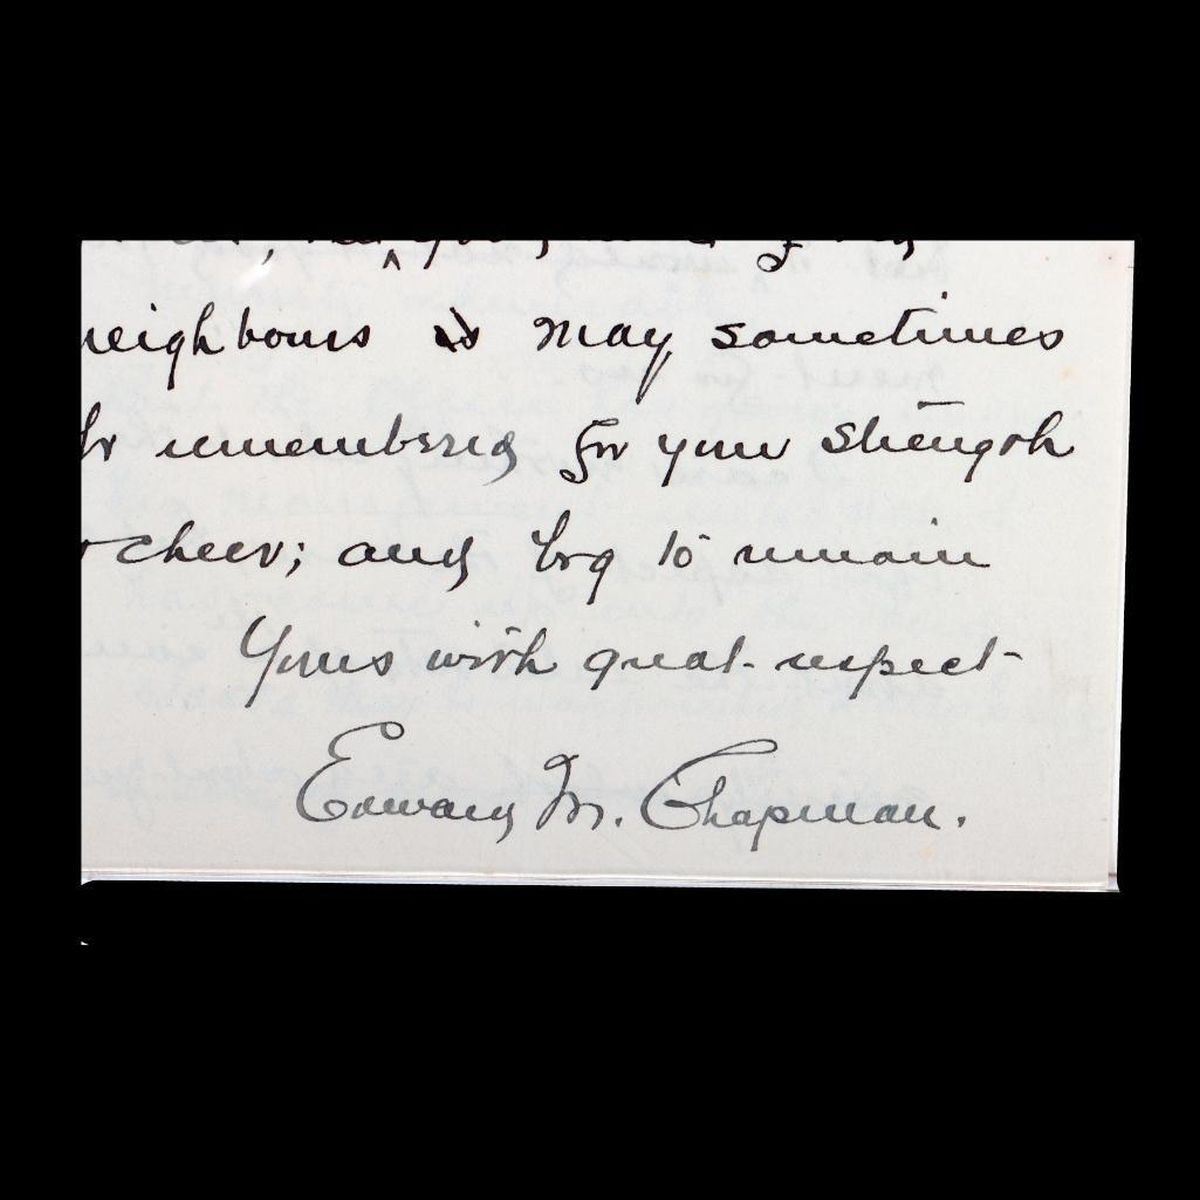 neighbours may sometimes
be remembered for your strength
cheer; and beg to remain
Yours with great respect
Edward M. Chapman.